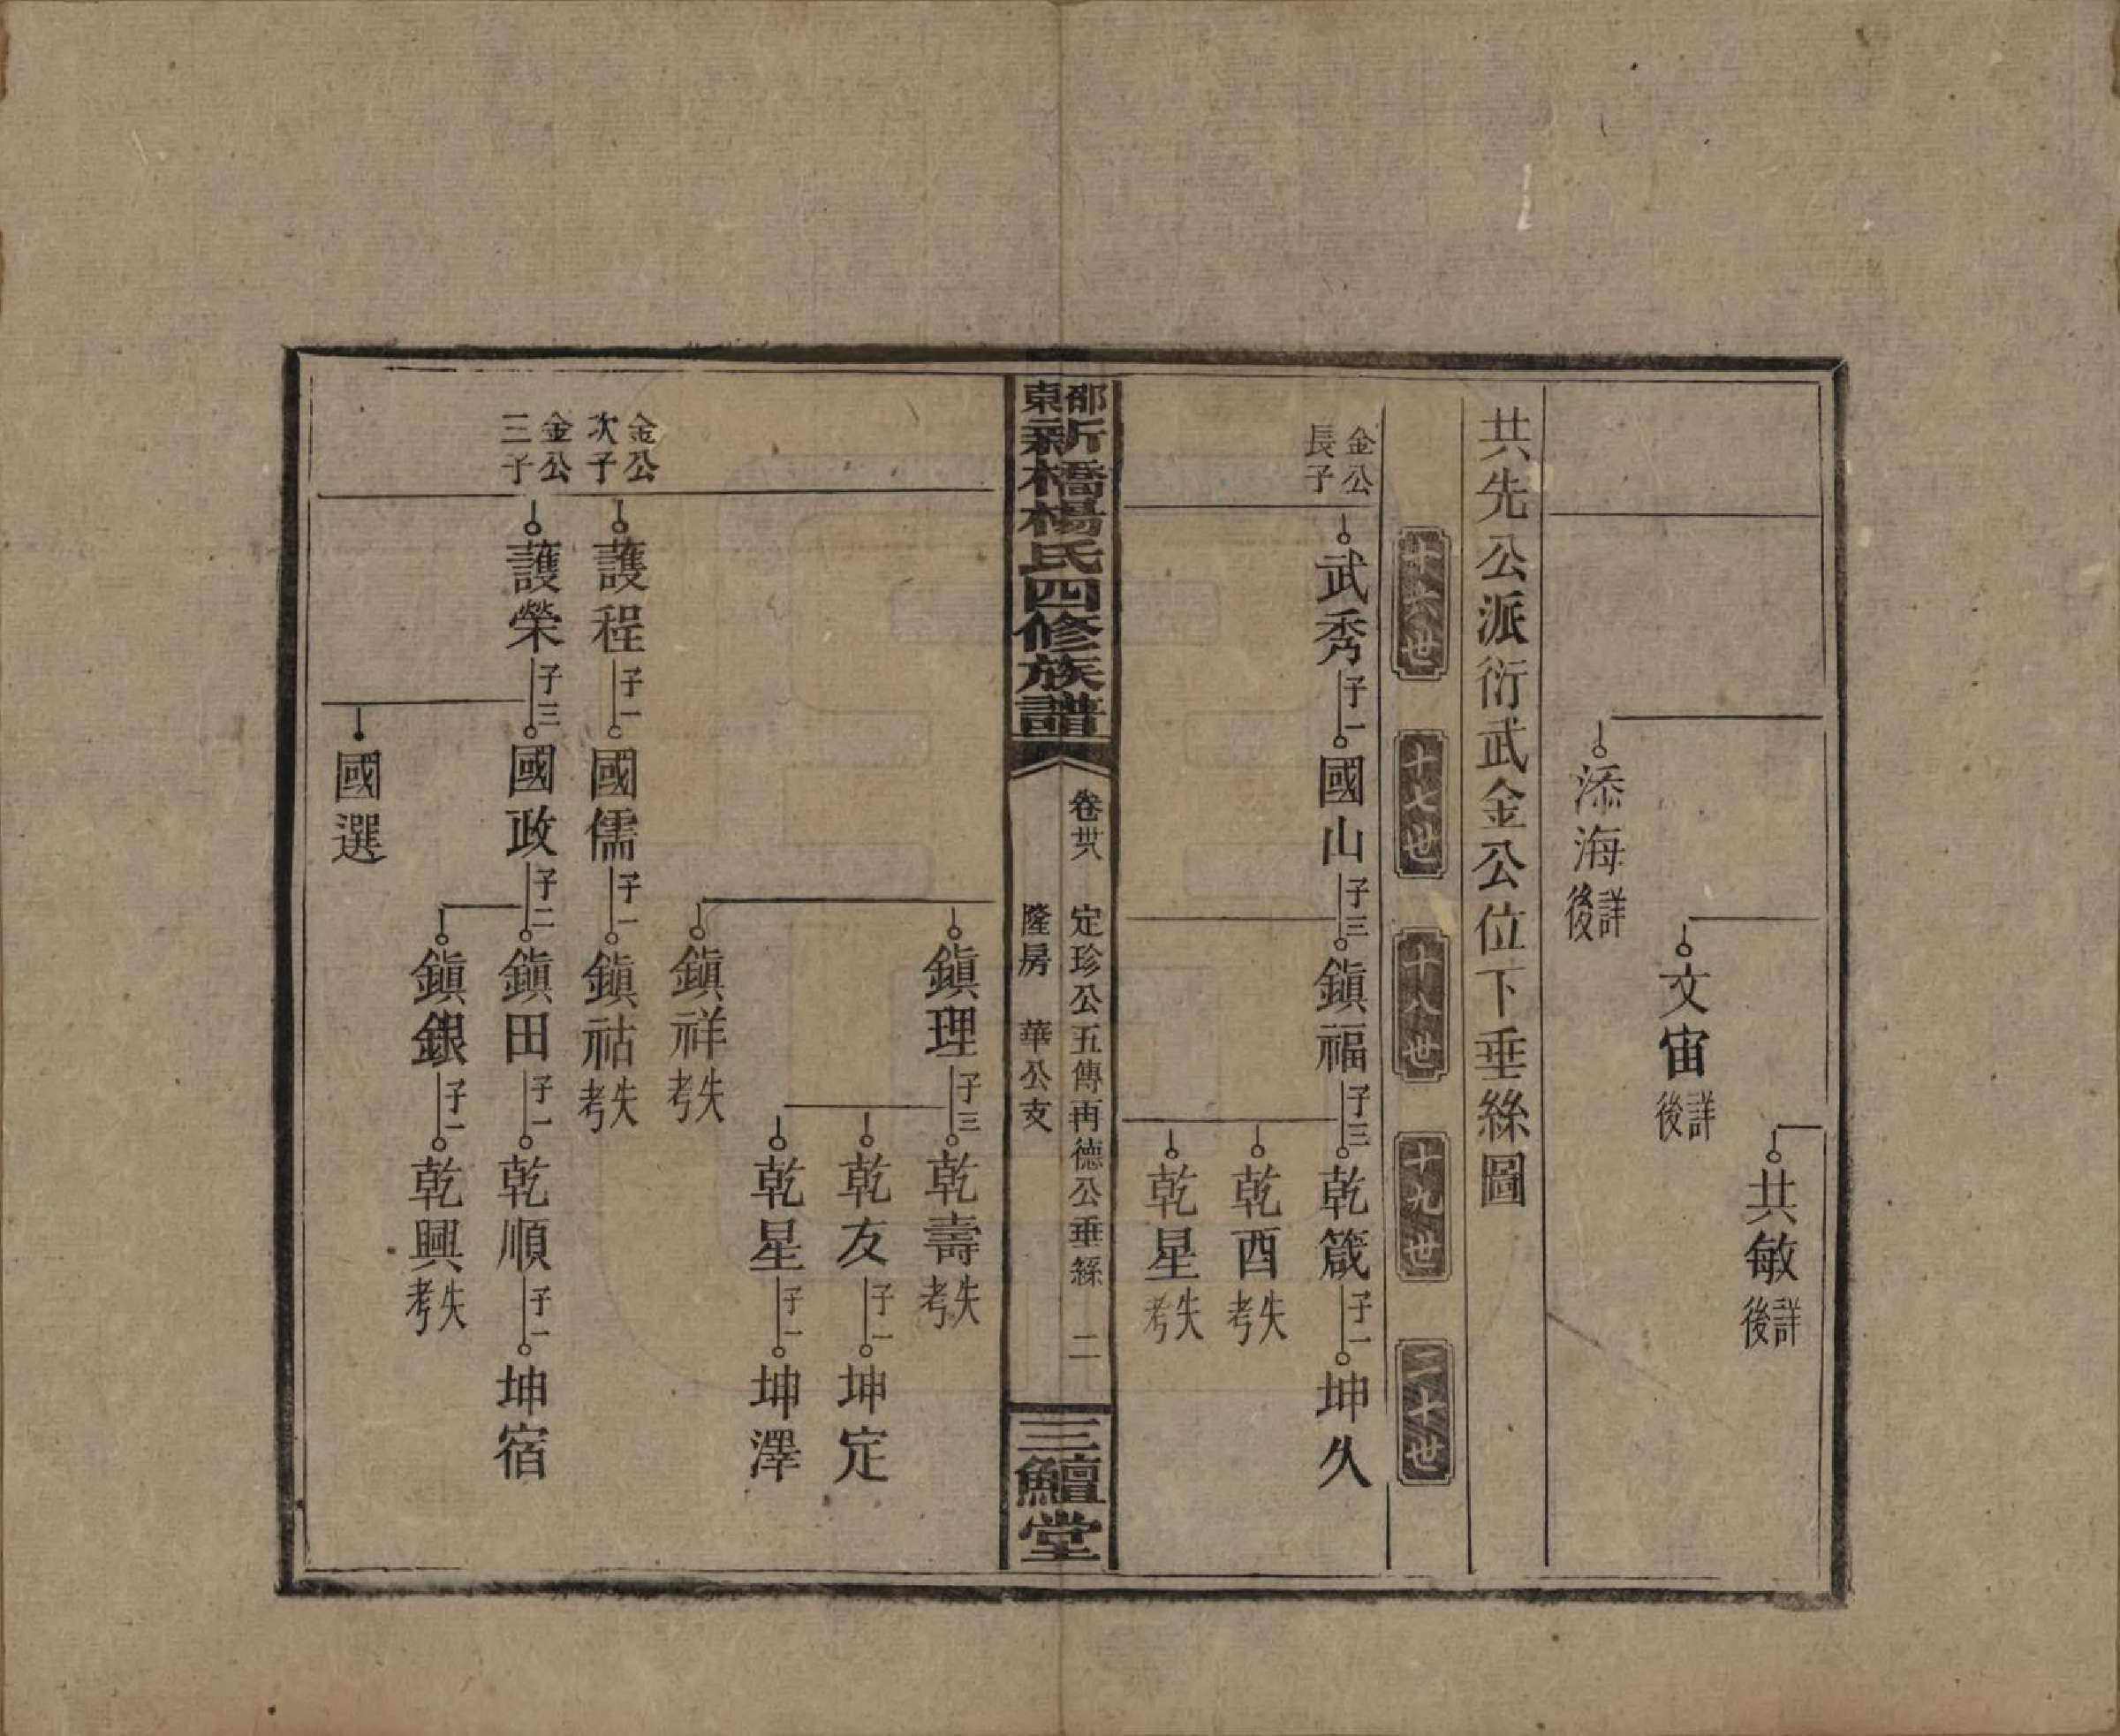 共敏詳後
文宙詳後
添海詳後
共先公派衍武金公位下垂絲圖
十六世 十七世 十八世 十九世 二十世
金公長子 武秀 子一 國山 子三 鎮福 子三 乾箴 子一 坤久
乾酉失考
乾星失考
邵東新橋楊氏四修族譜 卷卅八 定珍公五傳再德公垂絲 二
隆房 華公支
三鱣堂
鎮理 子三 乾壽失考
乾友 子一 坤定
乾星 子一 坤澤
鎮祥失考
金公次子 護程 子一 國儒 子一 鎮祜失考
金公三子 護榮 子三 國政 子二 鎮田 子一 乾順 子一 坤宿
鎮銀 子一 乾興失考
國選